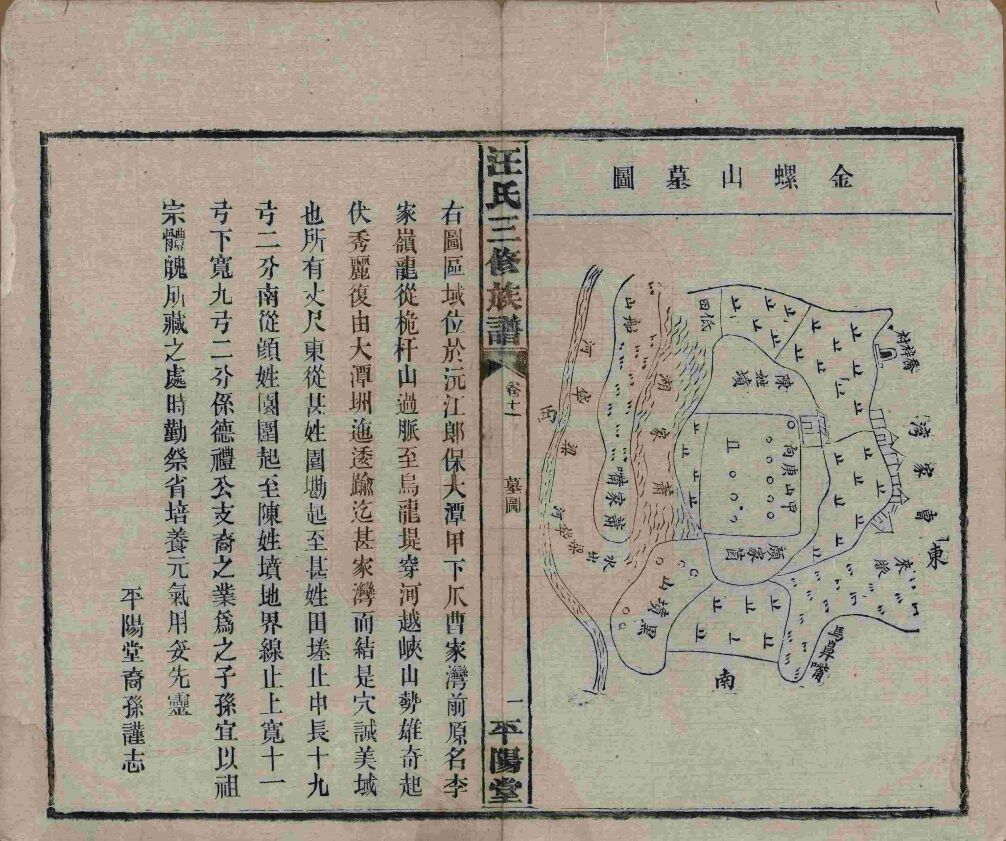 金螺山墓圖
東
曹家灣
來脈
馬鼻嘴
南
喬梓村
甲山庚向
陳姓墳
顏家園
低田
黑磅山
蕭家湖
蕭家嘴
船山
水出
河
汪氏三修族譜
卷十一
墓圖
一
平陽堂
右圖區域位於沅江郎保大潭甲下爪曹家灣前原名李
家嶺龍從桅杆山過脈至烏龍堤穿河越峽山勢雄奇起
伏秀麗復由大潭圳迤逶踰迄甚家灣而結是穴誠美域
也所有丈尺東從甚姓園勘起至甚姓田塍止中長十九
弓二分南從顔姓園圍起至陳姓墳地界線止上寬十一
弓下寬九弓二分係德禮公支裔之業爲之子孫宜以祖
宗體魄所藏之處時勤祭省培養元氣用妥先靈
平陽堂裔孫謹志